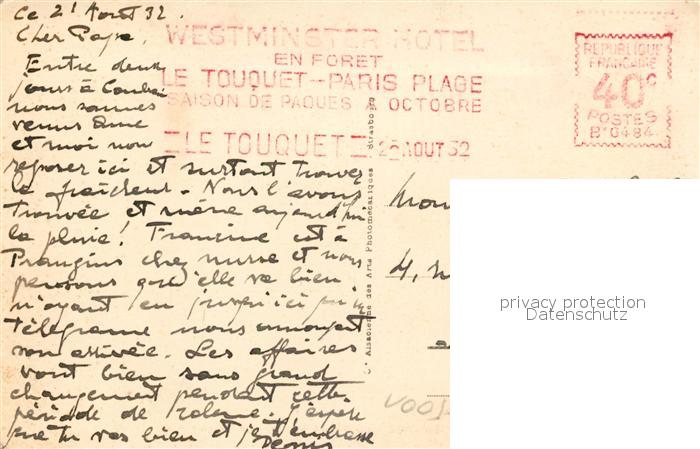 Ce 21 Aout 32.
Cher Papa,
Entre deux
jours à
nous sommes
venus
et moi nous
reposer ici et surtout trouver
la fraîcheur. Nous l'avons
trouvée et même aujourd'hui
la pluie! Francine est à
Prangins chez nurse et nous
pensons qu'elle va bien
n'ayant eu jusqu'ici qu'un
télégramme nous annonçant
son arrivée. Les affaires
vont bien sans grand
changement pendant cette
période de calme. J'espère
que tu vas bien et je t'embrasse
Denis
WESTMINSTER HOTEL
EN FORET
LE TOUQUET--PARIS PLAGE
SAISON DE PAQUES A OCTOBRE
LE TOUQUET
AOUT 32
REPUBLIQUE
FRANCAISE
40c
POSTES
B·0484
Cie Alsacienne des Arts Photomécaniques Strasbourg
4,
privacy protection
Datenschutz